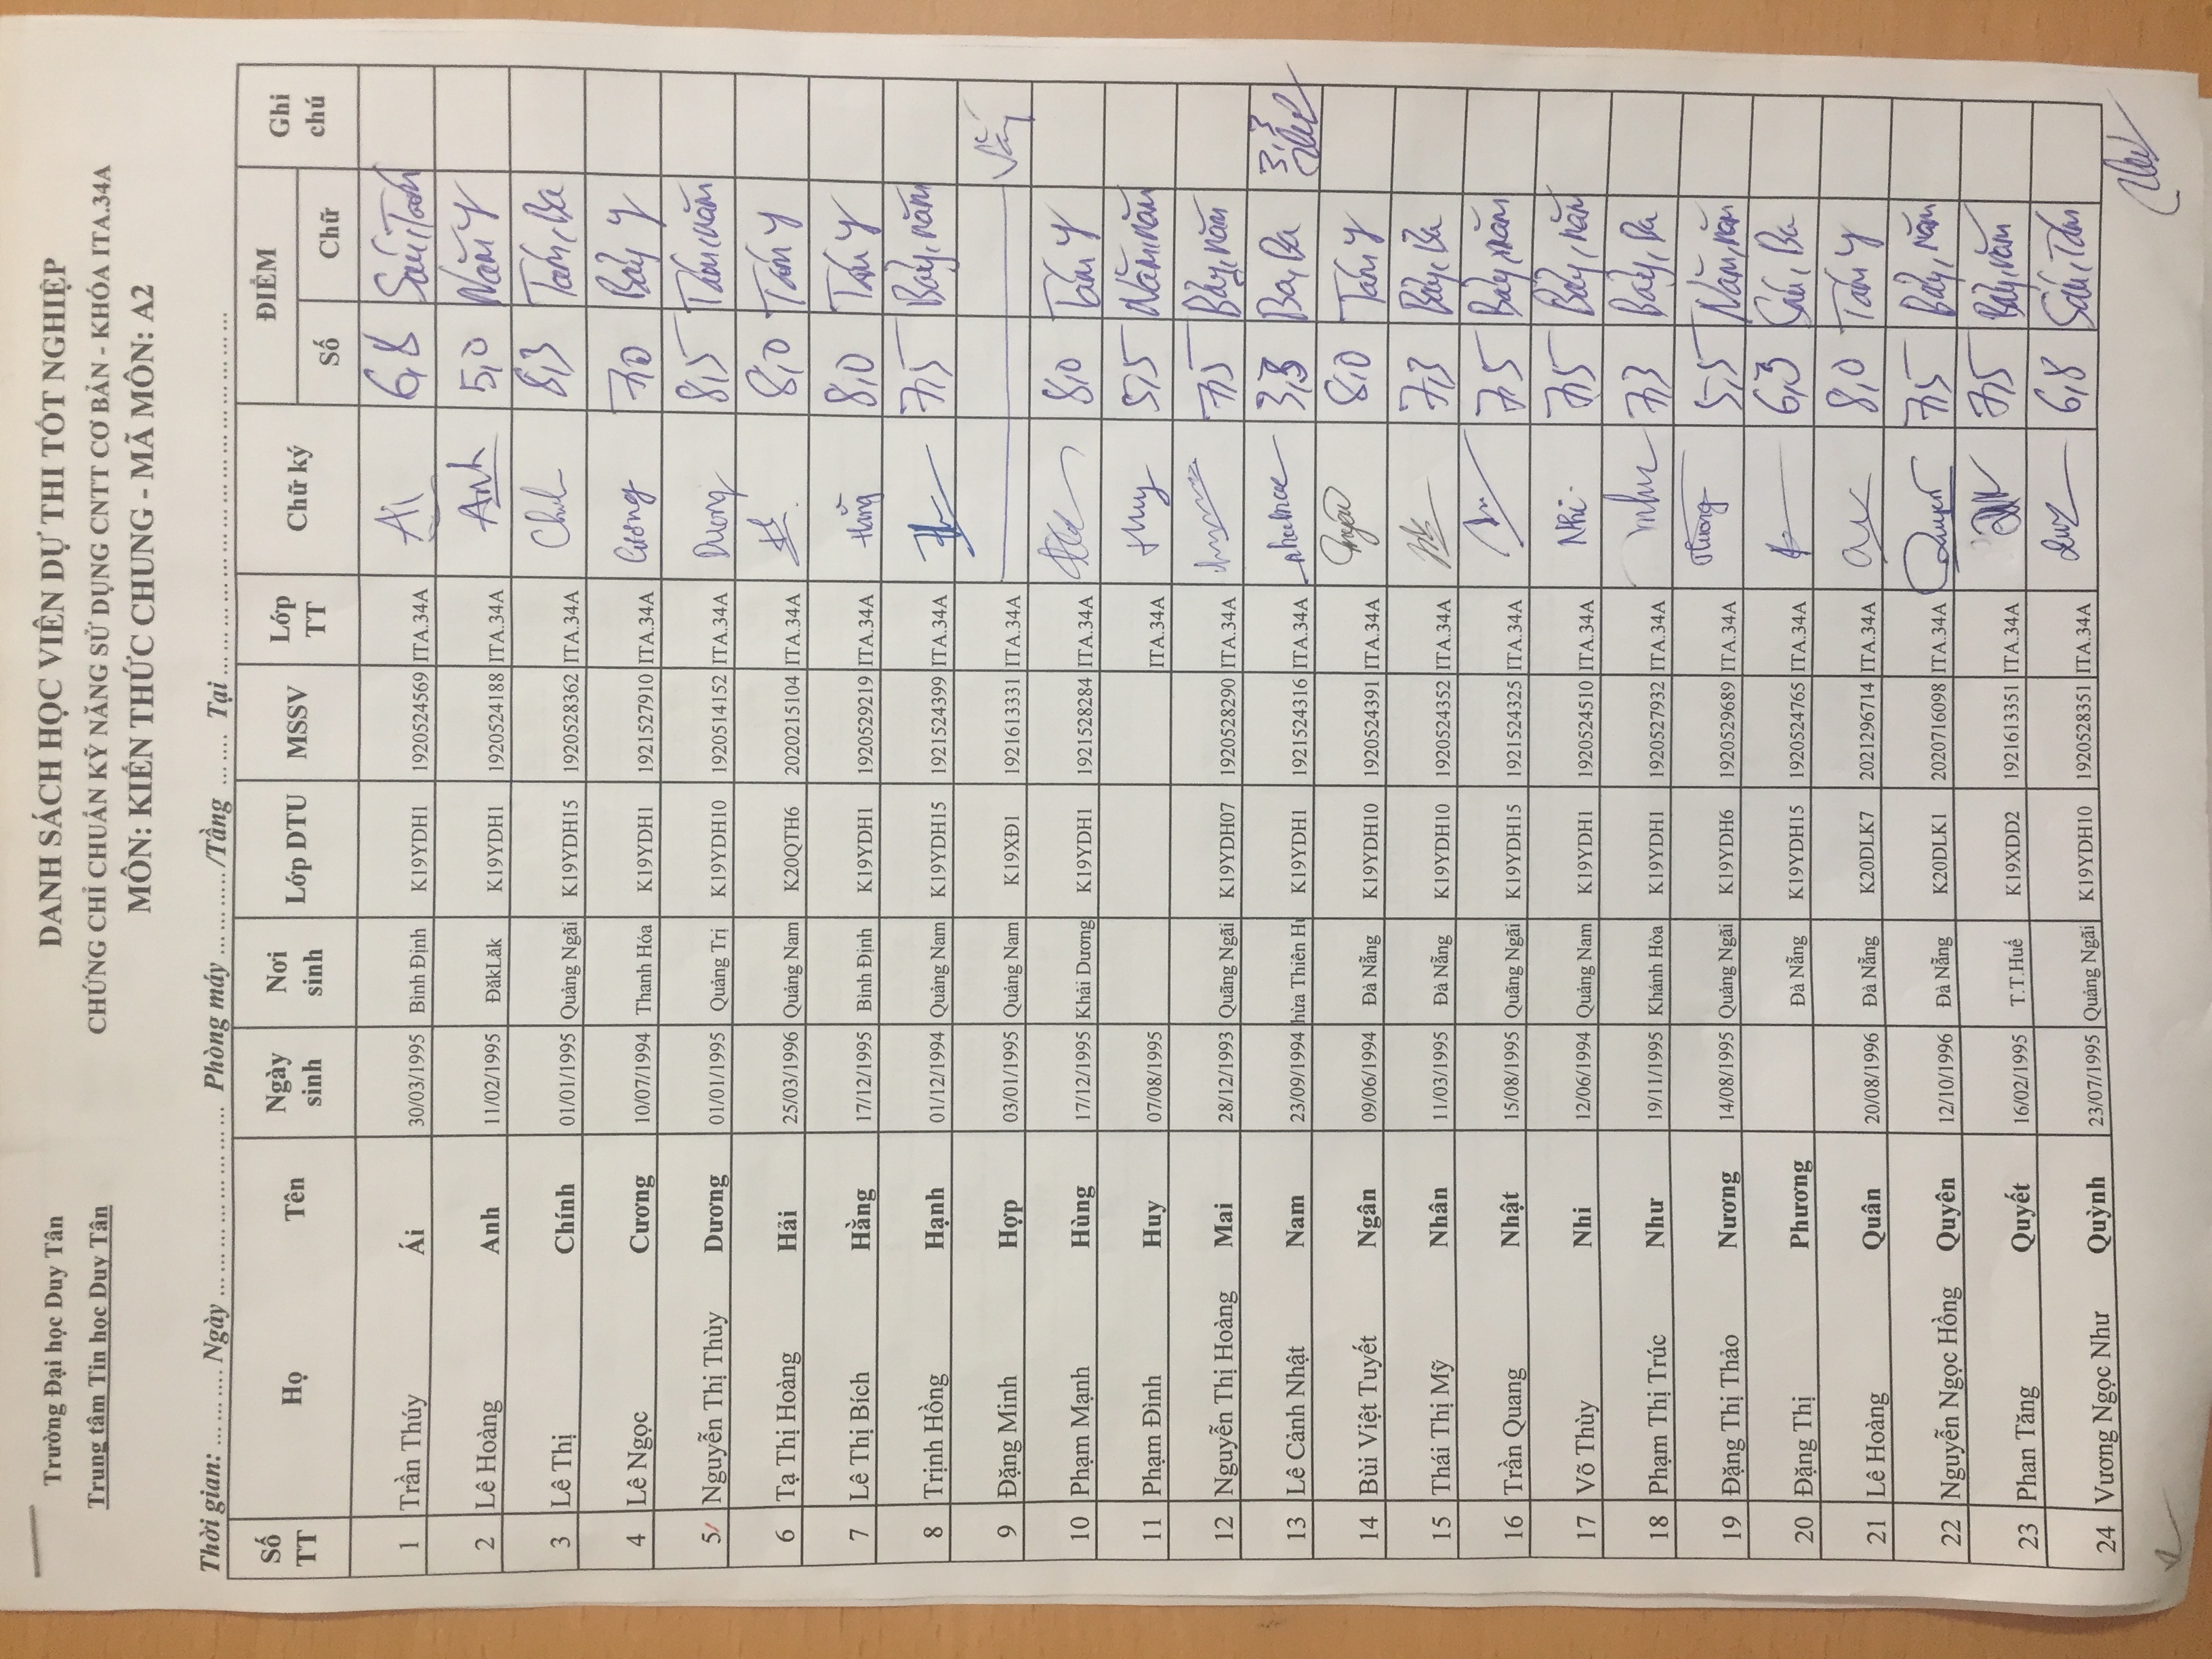 Trường Đại học Duy Tân
Trung tâm Tin học Duy Tân
DANH SÁCH HỌC VIÊN DỰ THI TỐT NGHIỆP
CHỨNG CHỈ CHUẨN KỸ NĂNG SỬ DỤNG CNTT CƠ BẢN - KHÓA ITA.34A
MÔN: KIẾN THỨC CHUNG - MÃ MÔN: A2
Thời gian: ... ... Ngày ... ... ... ... Phòng máy ... ... ... /Tầng ... ... Tại ... ... ... ...
Số TT Họ Tên Ngày sinh Nơi sinh Lớp DTU MSSV Lớp TT Chữ ký ĐIỂM Số Chữ Ghi chú
1 Trần Thúy Ái 30/03/1995 Bình Định K19YDH1 1920524569 ITA.34A Ái 6,8 Sáu, Tám
2 Lê Hoàng Anh 11/02/1995 ĐăkLăk K19YDH1 1920524188 ITA.34A Anh 5,0 Năm y
3 Lê Thị Chính 01/01/1995 Quảng Ngãi K19YDH15 1920528362 ITA.34A 8,3 Tám, Ba
4 Lê Ngọc Cương 10/07/1994 Thanh Hóa K19YDH1 1921527910 ITA.34A Cương 7,0 Bảy y
5 Nguyễn Thị Thùy Dương 01/01/1995 Quảng Trị K19YDH10 1920514152 ITA.34A Dương 8,5 Tám, năm
6 Tạ Thị Hoàng Hải 25/03/1996 Quảng Nam K20QTH6 2020215104 ITA.34A 8,0 Tám y
7 Lê Thị Bích Hằng 17/12/1995 Bình Định K19YDH1 1920529219 ITA.34A Hằng 8,0 Tám y
8 Trịnh Hồng Hạnh 01/12/1994 Quảng Nam K19YDH15 1921524399 ITA.34A 7,5 Bảy, năm
9 Đặng Minh Hợp 03/01/1995 Quảng Nam K19XĐ1 1921613331 ITA.34A Vắng
10 Phạm Mạnh Hùng 17/12/1995 Khải Dương K19YDH1 1921528284 ITA.34A 8,0 Tám y
11 Phạm Đình Huy 07/08/1995 ITA.34A Huy 5,5 Năm, năm
12 Nguyễn Thị Hoàng Mai 28/12/1993 Quãng Ngãi K19YDH07 1920528290 ITA.34A 7,5 Bảy, năm
13 Lê Cảnh Nhật Nam 23/09/1994 hừa Thiên Hu K19YDH1 1921524316 ITA.34A 3,3 Ba, Ba 3,3
14 Bùi Việt Tuyết Ngân 09/06/1994 Đà Nẵng K19YDH10 1920524391 ITA.34A 8,0 Tám y
15 Thái Thị Mỹ Nhân 11/03/1995 Đà Nẵng K19YDH10 1920524352 ITA.34A 7,3 Bảy, Ba
16 Trần Quang Nhật 15/08/1995 Quãng Ngãi K19YDH15 1921524325 ITA.34A 7,5 Bảy, năm
17 Võ Thùy Nhi 12/06/1994 Quảng Nam K19YDH1 1920524510 ITA.34A Nhi 7,5 Bảy, năm
18 Phạm Thị Trúc Như 19/11/1995 Khánh Hòa K19YDH1 1920527932 ITA.34A 7,3 Bảy, Ba
19 Đặng Thị Thảo Nương 14/08/1995 Quảng Ngãi K19YDH6 1920529689 ITA.34A 5,5 Năm, năm
20 Đặng Thị Phương Đà Nẵng K19YDH15 1920524765 ITA.34A 6,3 Sáu, Ba
21 Lê Hoàng Quân 20/08/1996 Đà Nẵng K20DLK7 2021296714 ITA.34A 8,0 Tám y
22 Nguyễn Ngọc Hồng Quyên 12/10/1996 Đà Nẵng K20DLK1 2020716098 ITA.34A Quyên 7,5 Bảy, năm
23 Phan Tăng Quyết 16/02/1995 T.T.Huế K19XDD2 1921613351 ITA.34A 7,5 Bảy, năm
24 Vương Ngọc Như Quỳnh 23/07/1995 Quảng Ngãi K19YDH10 1920528351 ITA.34A 6,8 Sáu, Tám